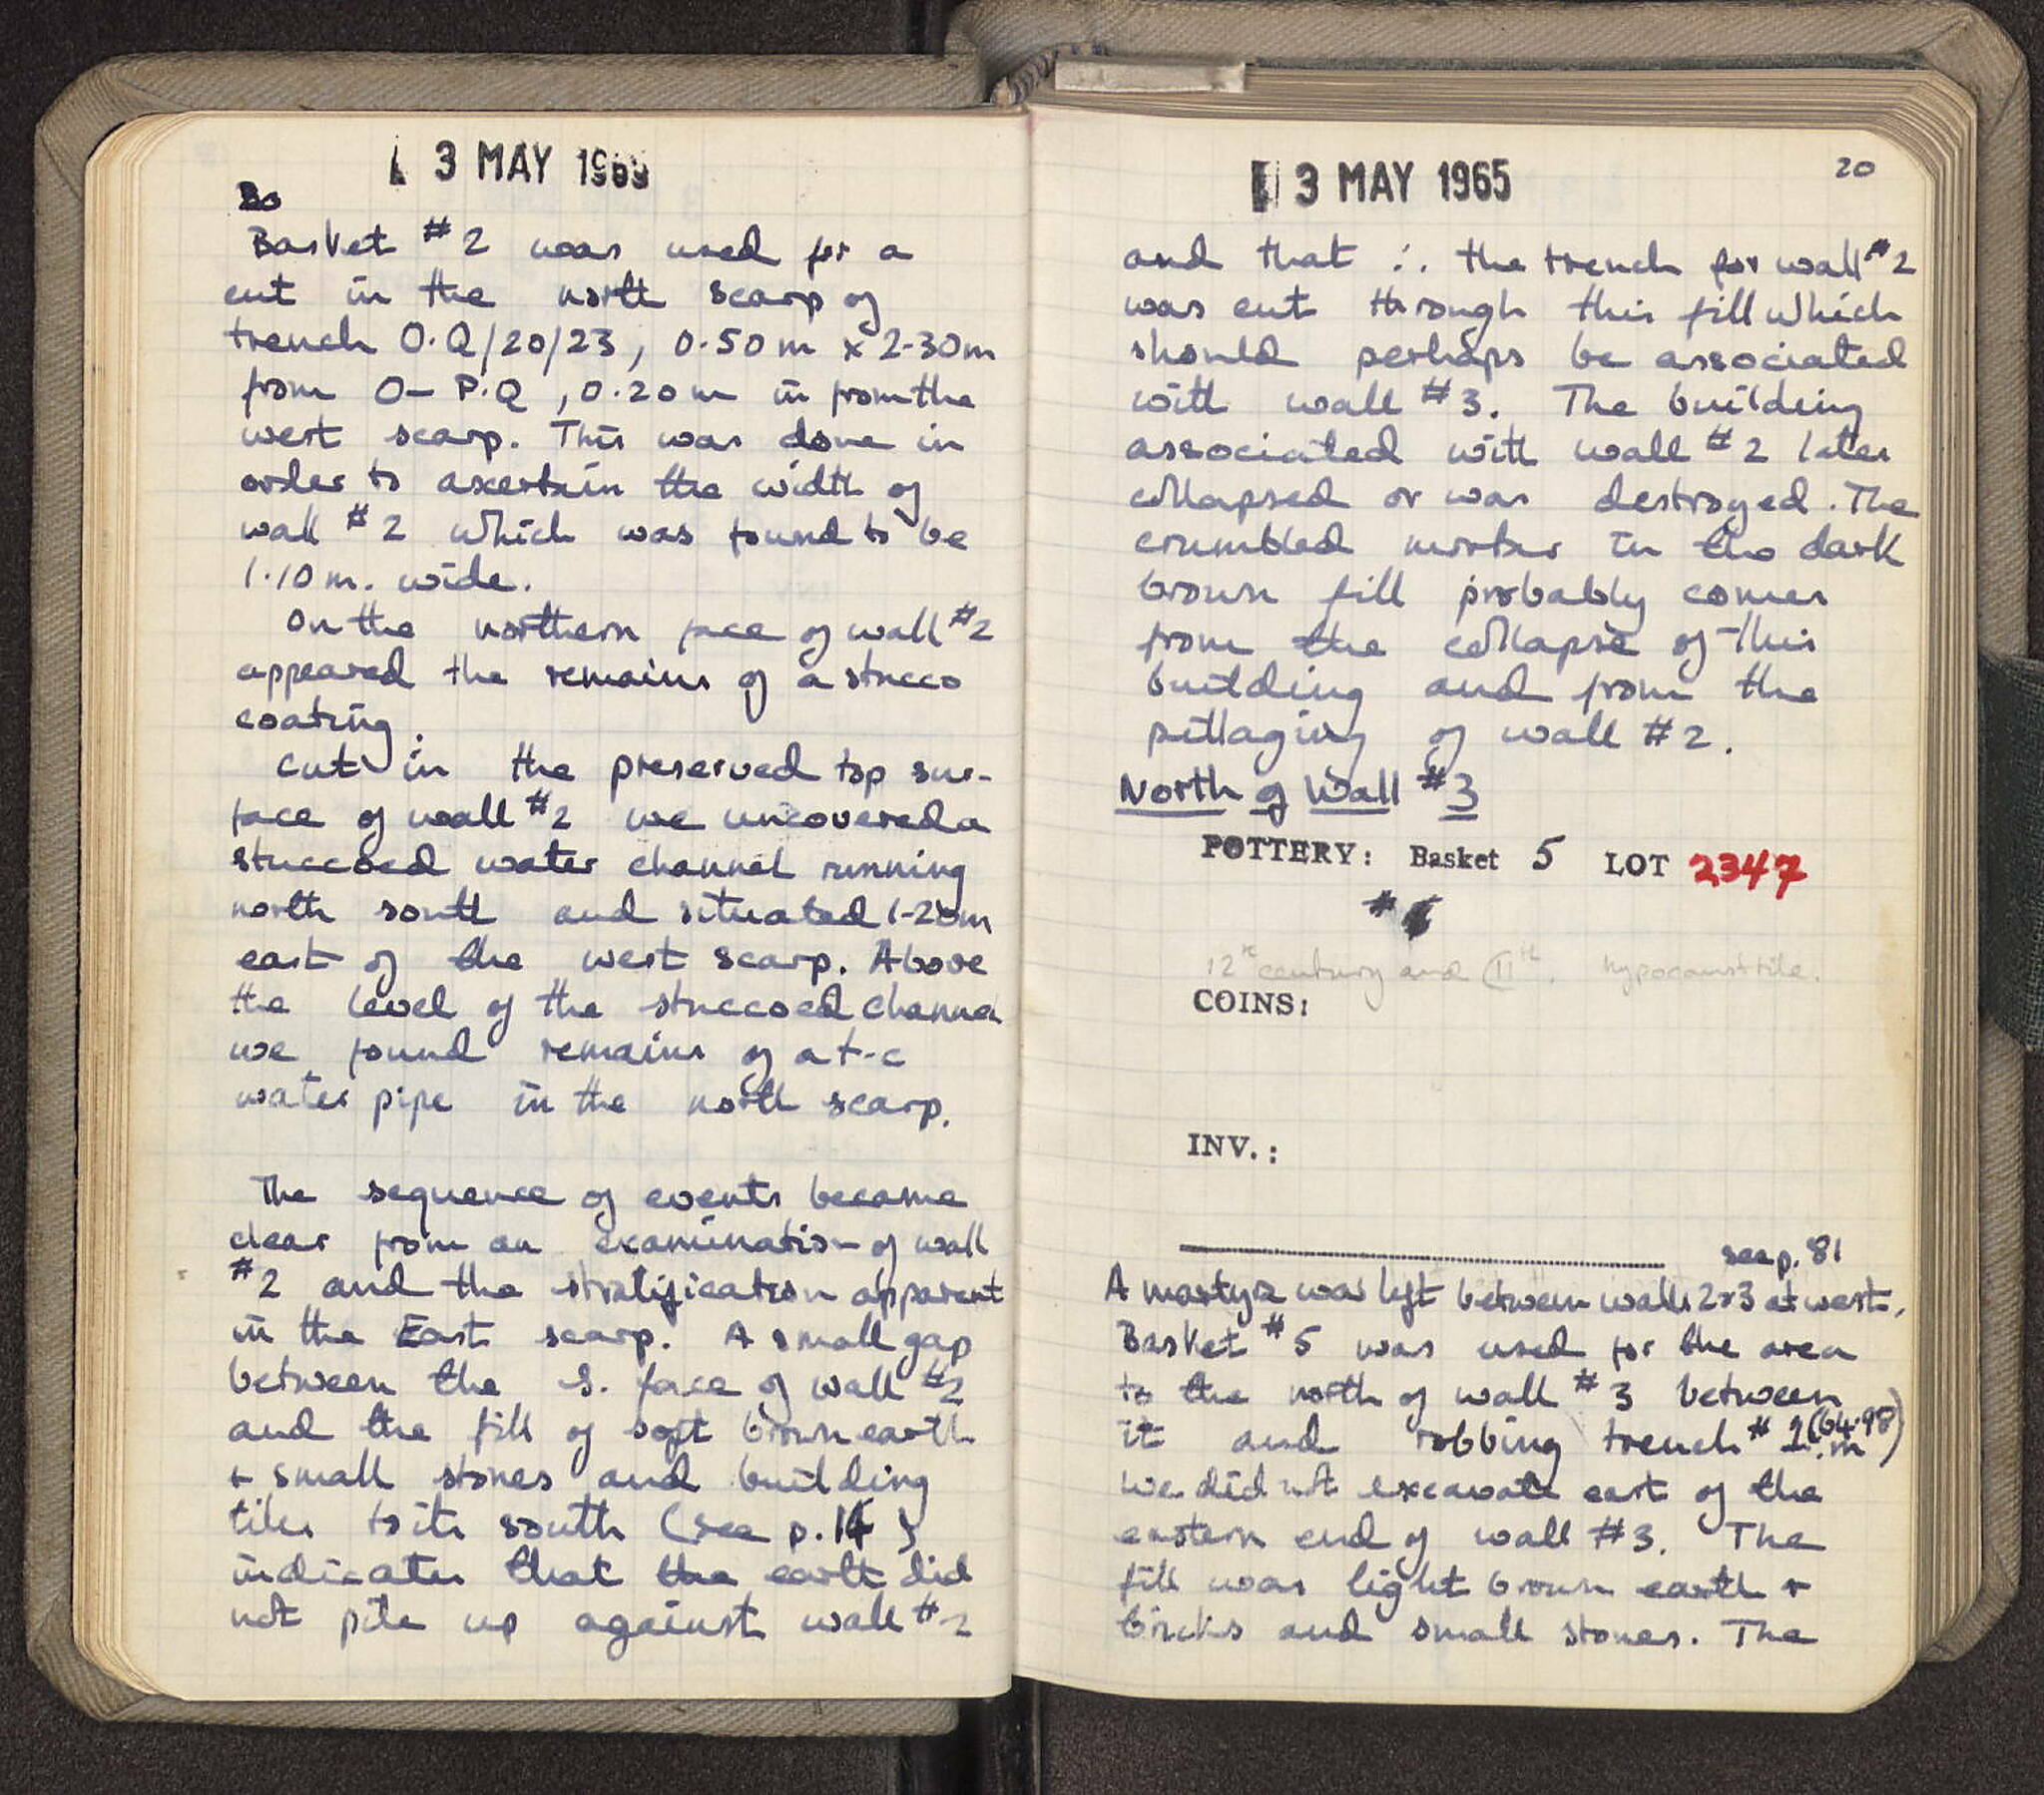 3 MAY 1965
Basket #2 was used for a
cut in the north scarp of
trench O.Q/20/23, 0.50m x 2.30m
from O-P.Q, 0.20m in from the
west scarp. This was done in
order to ascertain the width of
wall #2 which was found to be
1.10m. wide.
On the northern face of wall #2
appeared the remains of a stucco
coating.
Cut in the preserved top sur-
face of wall #2 we uncovered a
stuccoed water channel running
north south and situated 1.20m
east of the west scarp. Above
the level of the stuccoed channel
we found remains of a t-c
water pipe in the north scarp.
The sequence of events became
clear from an examination of wall
#2 and the stratification apparent
in the East scarp. A small gap
between the S. face of wall #2
and the fill of soft brown earth
+ small stones and building
tiles to its south (see p.14)
indicates that the earth did
not pile up against wall #2
3 MAY 1965
20
and that ∴ the trench for wall #2
was cut through this fill which
should perhaps be associated
with wall #3. The building
associated with wall #2 later
collapsed or was destroyed. The
crumbled mortar in the dark
brown fill probably comes
from the collapse of this
building and from the
pillaging of wall #2.
North of Wall #3
POTTERY: Basket 5 LOT 2347
#
12th century and 11th. hypocaust tile.
COINS:
INV.:
see p. 81
A martyra was left between walls 2+3 at west.
Basket #5 was used for the area
to the north of wall #3 between
it and robbing trench #2 (64.98 m)
We did not excavate east of the
eastern end of wall #3. The
fill was light brown earth +
bricks and small stones. The